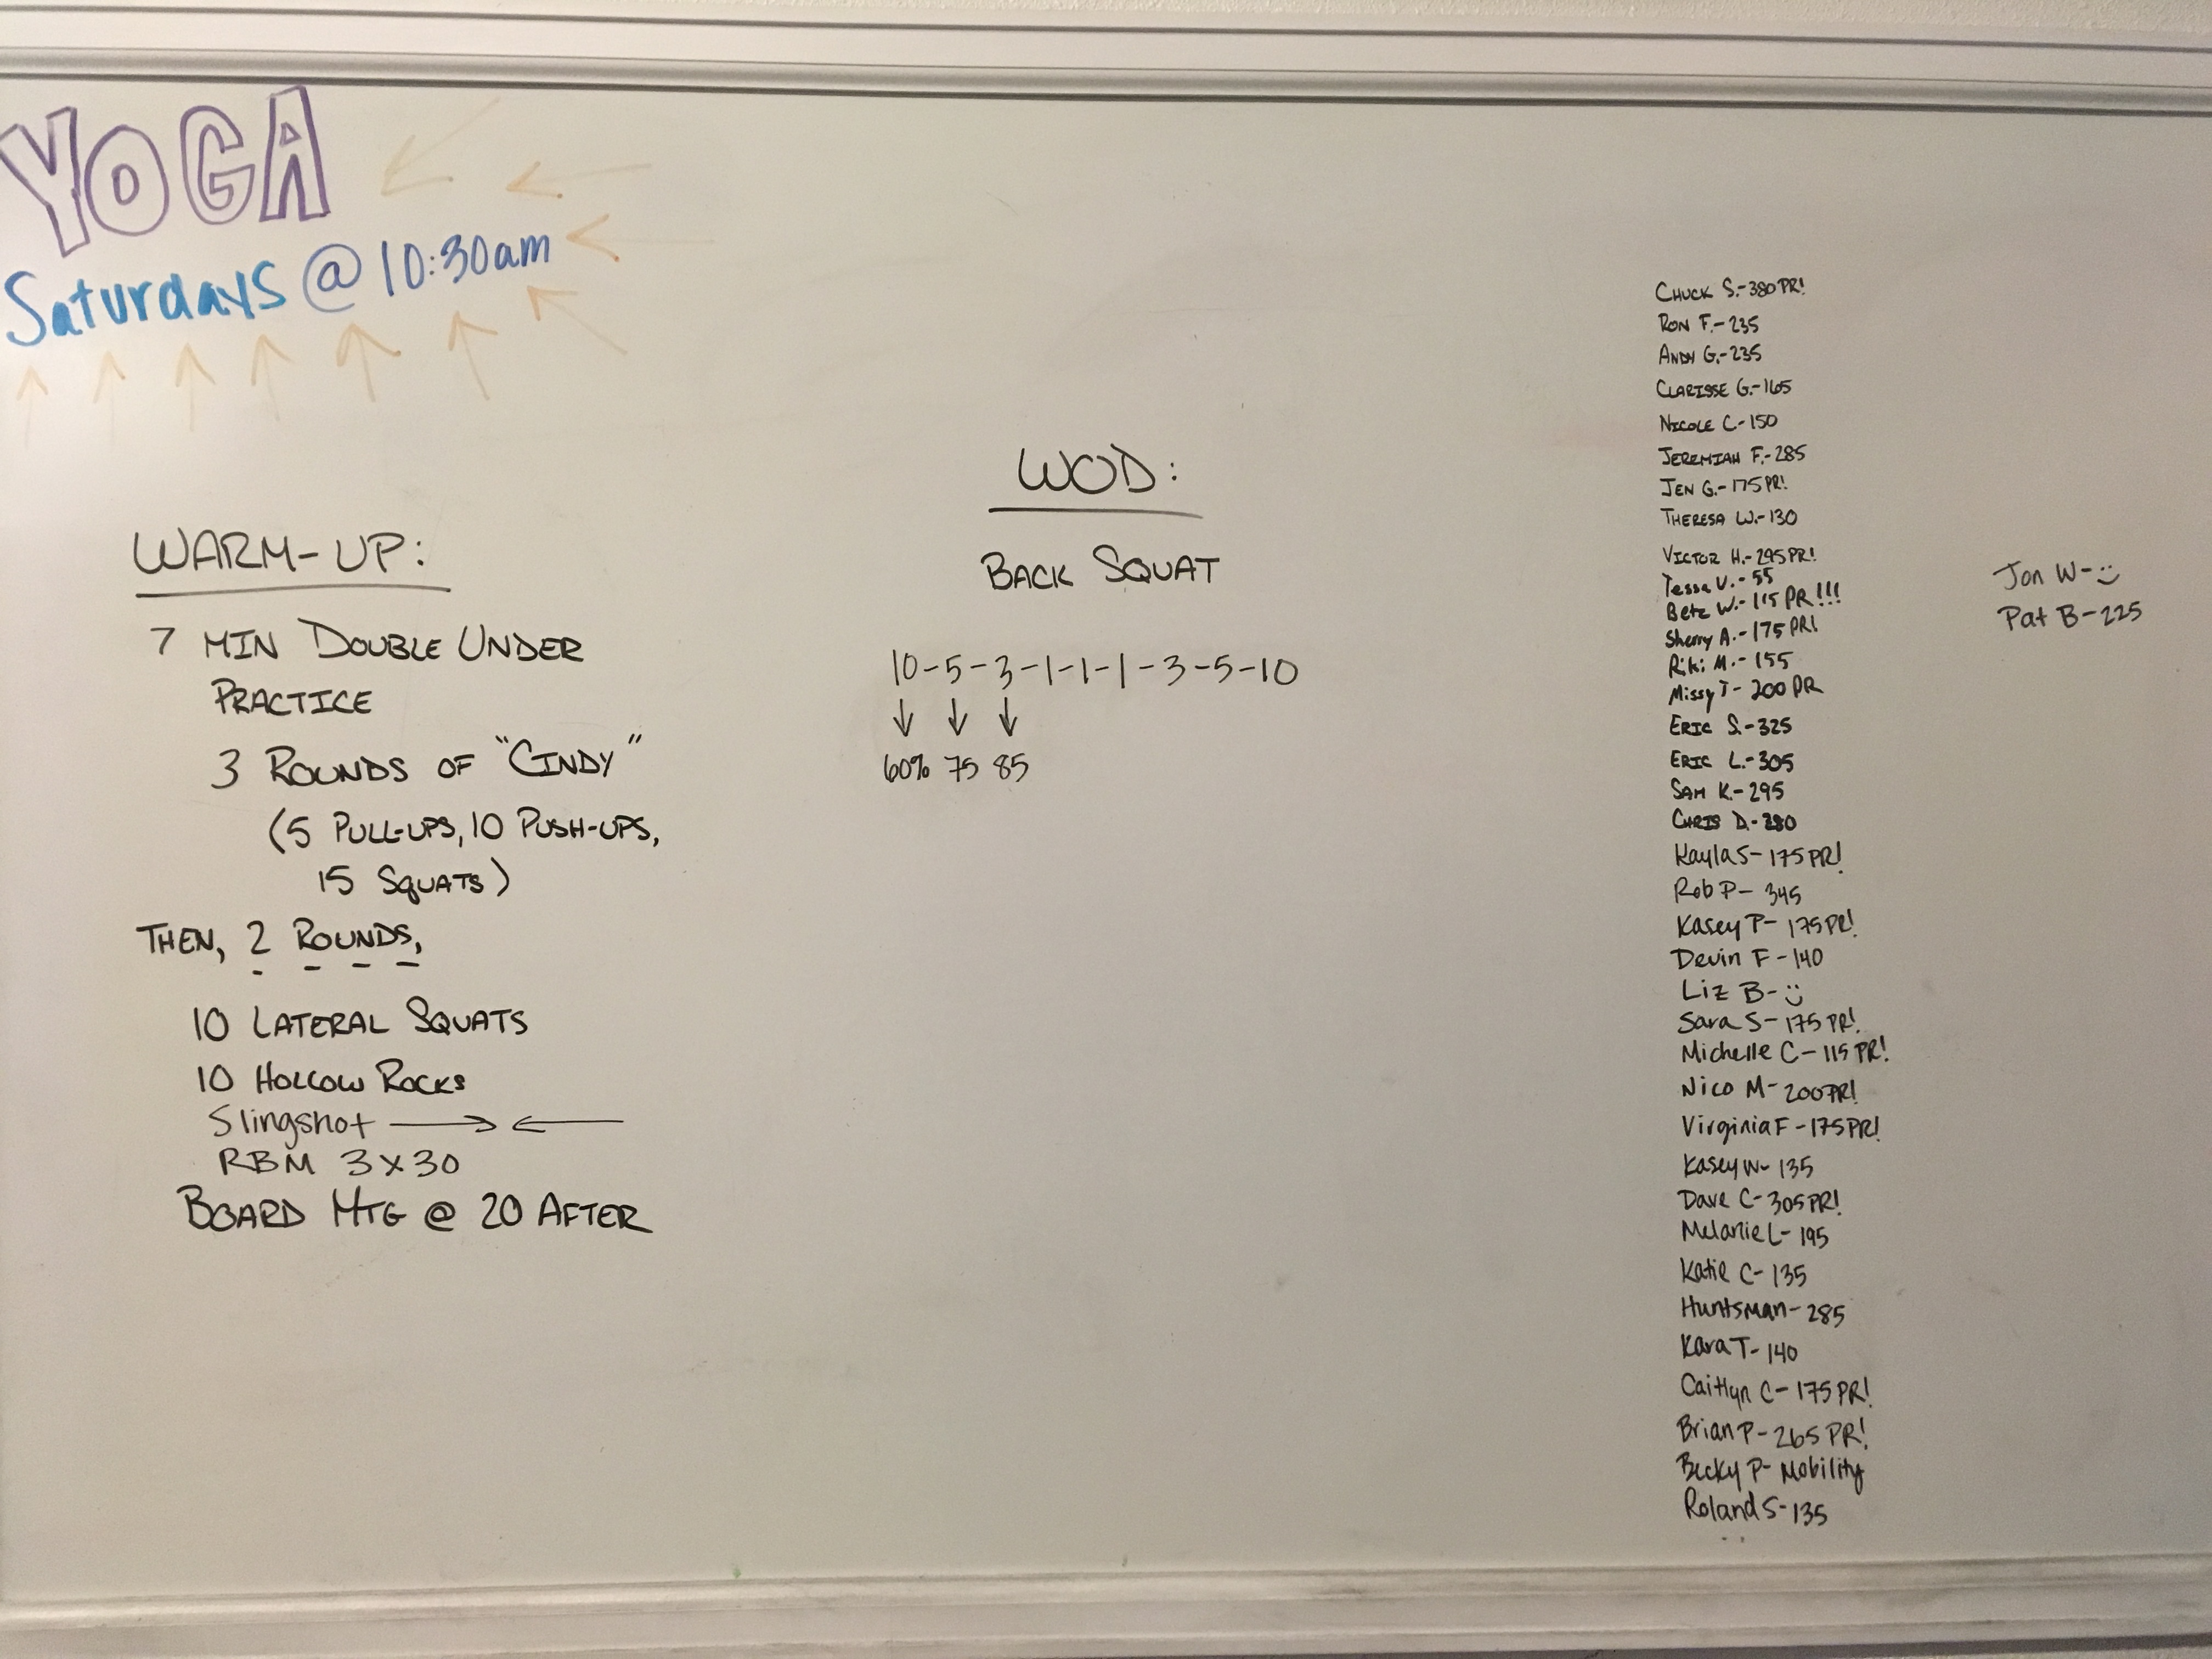 YOGA
Saturdays @ 10:30am
WARM-UP:
7 MIN DOUBLE UNDER
PRACTICE
3 ROUNDS OF "CINDY"
(5 PULL-UPS, 10 PUSH-UPS,
15 SQUATS)
THEN, 2 ROUNDS,
10 LATERAL SQUATS
10 HOLLOW ROCKS
Slingshot → ←
RBM 3x30
BOARD MTG @ 20 AFTER
WOD:
BACK SQUAT
10-5-3-1-1-1-3-5-10
↓ ↓ ↓
60% 75 85
CHUCK S.-380 PR!
RON F.-235
ANDY G.-235
CLARISSE G.-165
NICOLE C-150
JEREMIAH F.-285
JEN G.-175 PR!
THERESA W.-130
VICTOR H.-295 PR!
Tessa V.-55
Betz W.-115 PR!!!
Sherry A.-175 PR!
Riki M.-155
Missy T-200 PR
ERIC S.-325
ERIC L.-305
SAM K.-295
CHRIS D.-280
Kayla S-175 PR!
Rob P-345
Kasey P-175 PR!
Devin F-140
Liz B-
Sara S-175 PR!
Michelle C-115 PR!
Nico M-200 PR!
Virginia F-175 PR!
Kasey W-135
Dave C-305 PR!
Melanie L-195
Katie C-135
Huntsman-285
Kara T-140
Caitlyn C-175 PR!
Brian P-265 PR!
Becky P-Mobility
Roland S-135
Jon W-
Pat B-225